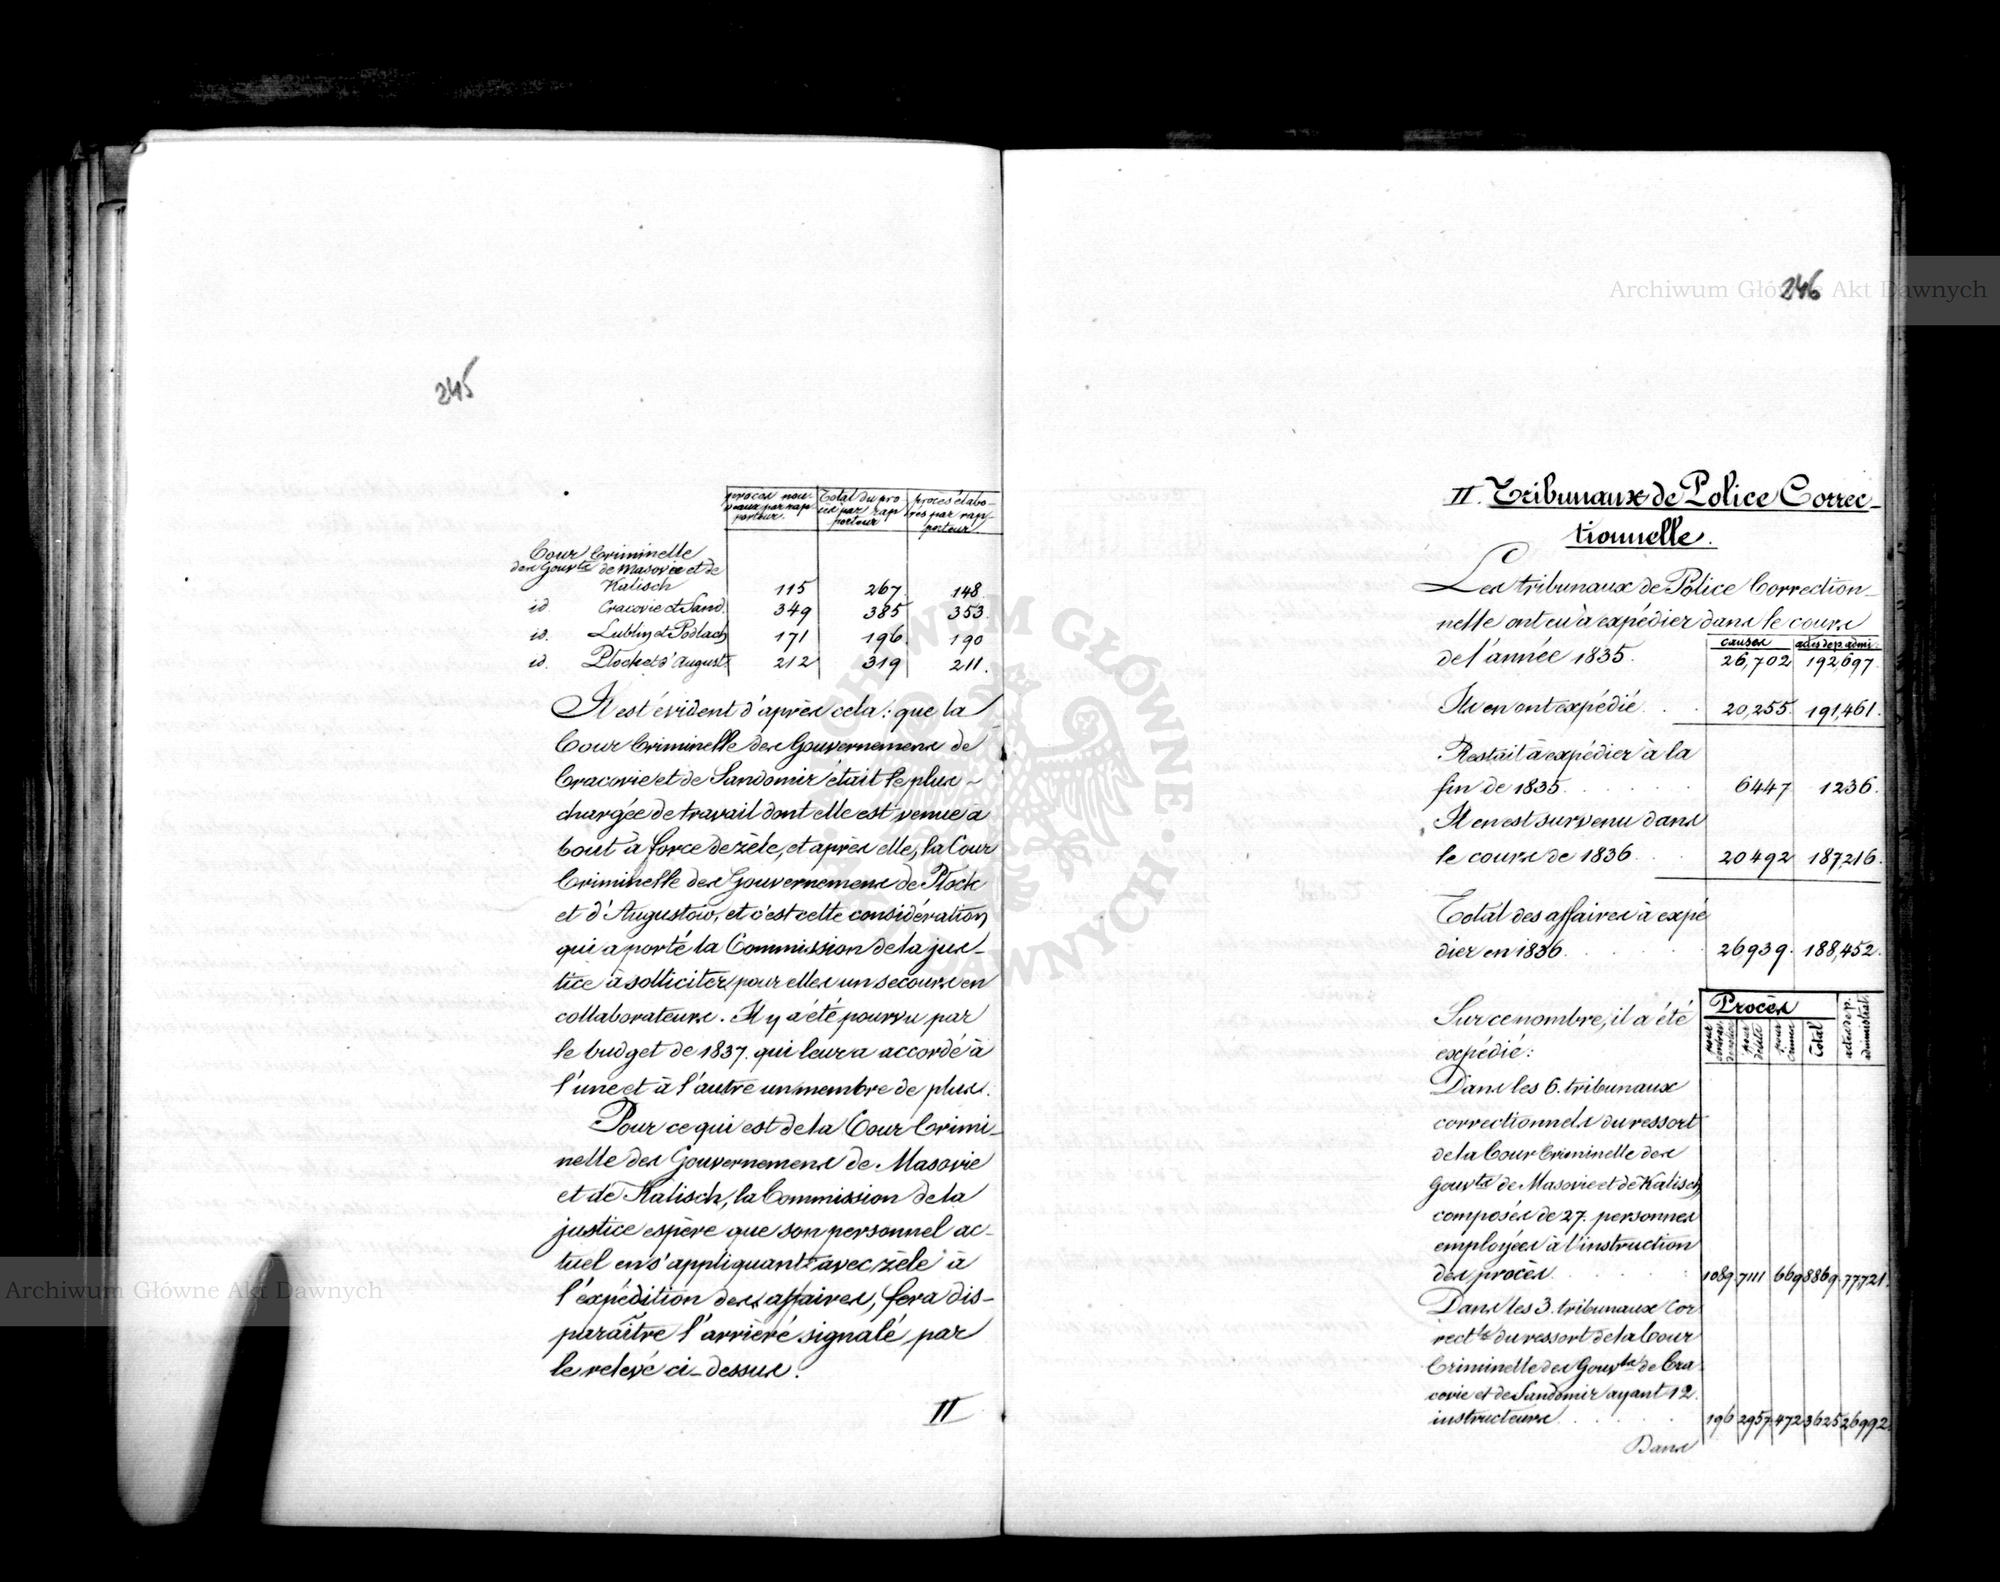 245
procès nou- Total du pro procès élabo-
veaux par rap cès par rap rés par rap-
porteur. porteur porteur.
Cour Criminelle
des Gouvts de Masovie et de
Kalisch 115 267 148
id. Cracovie et Sand. 349 385 353
id. Lublin et Podlach 171 196 190
id. Plock et d'August 212 319 211
Il est évident d'après cela: que la
Cour Criminelle des Gouvernemens de
Cracovie et de Sandomir était le plus-
chargée de travail dont elle est venue à
bout à force de zèle, et après elle, la Cour
Criminelle des Gouvernemens de Plock
et d'Augustow, et c'est cette considération,
qui a porté la Commission de la jus-
tice à solliciter pour elles un secours en
collaborateurs. Il y a été pourvu par
le budget de 1837. qui leur a accordé à
l'une et à l'autre un membre de plus.
Pour ce qui est de la Cour Crimi-
nelle des Gouvernemens de Masovie
et de Kalisch, la Commission de la
justice espère que son personnel ac-
tuel en s'appliquant avec zèle à
l'expédition des affaires, fera dis-
paraître l'arriéré signalé par
le relevé ci-dessus.
II
246
II. Tribunaux de Police Correc-
tionnelle.
Les tribunaux de Police Correction-
nelle ont eu à expédier dans le cours
causes actes de p. admi.
de l'année 1835. 26,702 192,697.
Ils en ont expédié . . 20,255. 191,461.
Restait à expédier à la
fin de 1835. . . . . . 6447 1236.
Il en est survenu dans
le cours de 1836 . . 20492 187,216.
Total des affaires à expé
dier en 1836. . . . . 26,939. 188,452.
Procès
Sur ce nombre, il a été
expédié:
pour délits pour crimes Total actes de p. administrat.
Dans les 6. tribunaux
correctionnels du ressort
de la Cour Criminelle des
Gouvts de Masovie et de Kalisch
composés de 27. personnes
employées à l'instruction
des procès. . . . . . 1089 7111 669 8869 77721.
Dans les 3. tribunaux Cor
rectls du ressort de la Cour
Criminelle des Gouvts de Cra
covie et de Sandomir ayant 12.
instructeurs . . . . . 196 2957 472 3625 26992.
Dans
Archiwum Główne Akt Dawnych
Archiwum Główne Akt Dawnych
ARCHIWUM GŁÓWNE AKT DAWNYCH